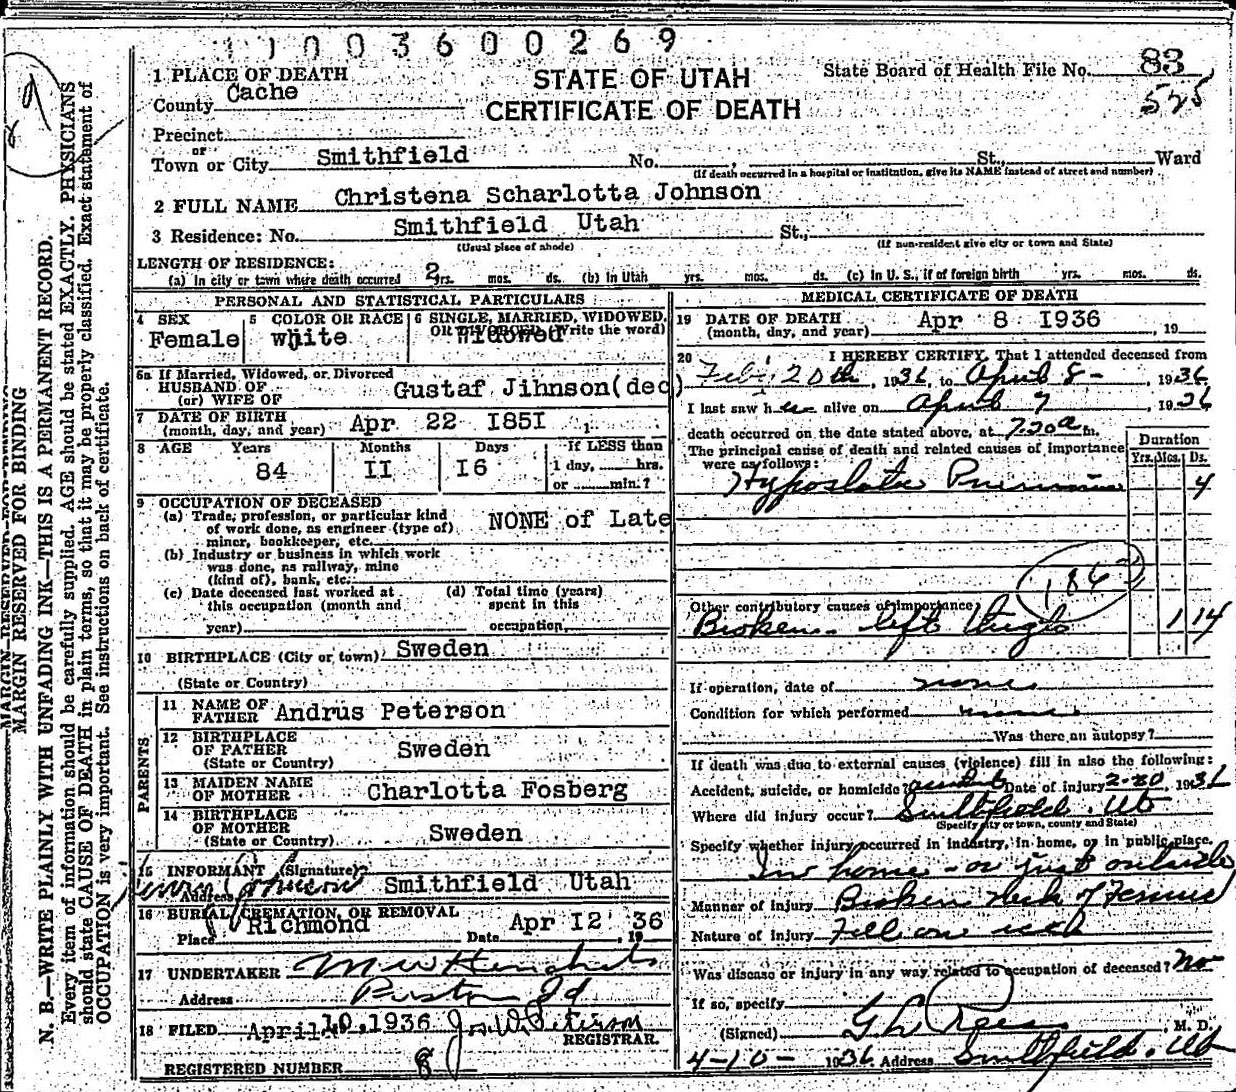 11003600269
STATE OF UTAH
CERTIFICATE OF DEATH
State Board of Health File No. 83
525
1 PLACE OF DEATH
County Cache
Precinct
or
Town or City Smithfield No. , St., Ward
(If death occurred in a hospital or institution, give its NAME instead of street and number)
2 FULL NAME Christena Scharlotta Johnson
3 Residence: No. Smithfield Utah St.,
(Usual place of abode) (If non-resident give city or town and State)
LENGTH OF RESIDENCE:
(a) In city or town where death occurred 2 yrs. mos. ds. (b) In Utah yrs. mos. ds. (c) In U. S., if of foreign birth yrs. mos. ds.
PERSONAL AND STATISTICAL PARTICULARS
4 SEX
Female
5 COLOR OR RACE
white
6 SINGLE, MARRIED, WIDOWED,
OR DIVORCED (Write the word)
Widowed
6a If Married, Widowed, or Divorced
HUSBAND OF
(or) WIFE OF Gustaf Jihnson(dec)
7 DATE OF BIRTH
(month, day, and year) Apr 22 1851
8 AGE Years Months Days If LESS than
84 II I6 1 day, hrs.
or min.?
9 OCCUPATION OF DECEASED
(a) Trade, profession, or particular kind
of work done, as engineer (type of)
miner, bookkeeper, etc. NONE of Late
(b) Industry or business in which work
was done, as railway, mine
(kind of), bank, etc.
(c) Date deceased last worked at
this occupation (month and
year)
(d) Total time (years)
spent in this
occupation
10 BIRTHPLACE (City or town) Sweden
(State or Country)
PARENTS
11 NAME OF
FATHER Andrus Peterson
12 BIRTHPLACE
OF FATHER Sweden
(State or Country)
13 MAIDEN NAME
OF MOTHER Charlotta Fosberg
14 BIRTHPLACE
OF MOTHER Sweden
(State or Country)
15 INFORMANT (Signature)
Johnson
Address Smithfield Utah
16 BURIAL, CREMATION, OR REMOVAL
Place Richmond Date Apr I2 36, 19
17 UNDERTAKER
Address Preston Id
18 FILED April 10, 1936 Jos. W. Peterson
REGISTRAR.
REGISTERED NUMBER 8
MEDICAL CERTIFICATE OF DEATH
19 DATE OF DEATH
(month, day, and year) Apr 8 I936, 19
20 I HEREBY CERTIFY, That I attended deceased from
Feb. 20th, 1936, to April 8-, 1936
I last saw her alive on April 7, 1936
death occurred on the date stated above, at 7:20 a m.
The principal cause of death and related causes of importance
were as follows:
Duration
Yrs. Mos. Ds.
Hypostatic Pneumonia 4
186
Other contributory causes of importance
Broken left thigh 1 14
If operation, date of none
Condition for which performed none
Was there an autopsy?
If death was due to external causes (violence) fill in also the following:
Accident, suicide, or homicide? accident Date of injury 2-20, 1936
Where did injury occur? Smithfield, Ut
(Specify city or town, county and State)
Specify whether injury occurred in industry, in home, or in public place.
In home - or just outside
Manner of injury Broken Neck of Femur
Nature of injury Fell on
Was disease or injury in any way related to occupation of deceased? No
If so, specify
(Signed) G L Rees, M. D.
4-10- 1936 Address Smithfield, Ut
MARGIN RESERVED FOR BINDING
N. B.—WRITE PLAINLY WITH UNFADING INK—THIS IS A PERMANENT RECORD.
Every item of information should be carefully supplied. AGE should be stated EXACTLY. PHYSICIANS
should state CAUSE OF DEATH in plain terms, so that it may be properly classified. Exact statement of
OCCUPATION is very important. See instructions on back of certificate.